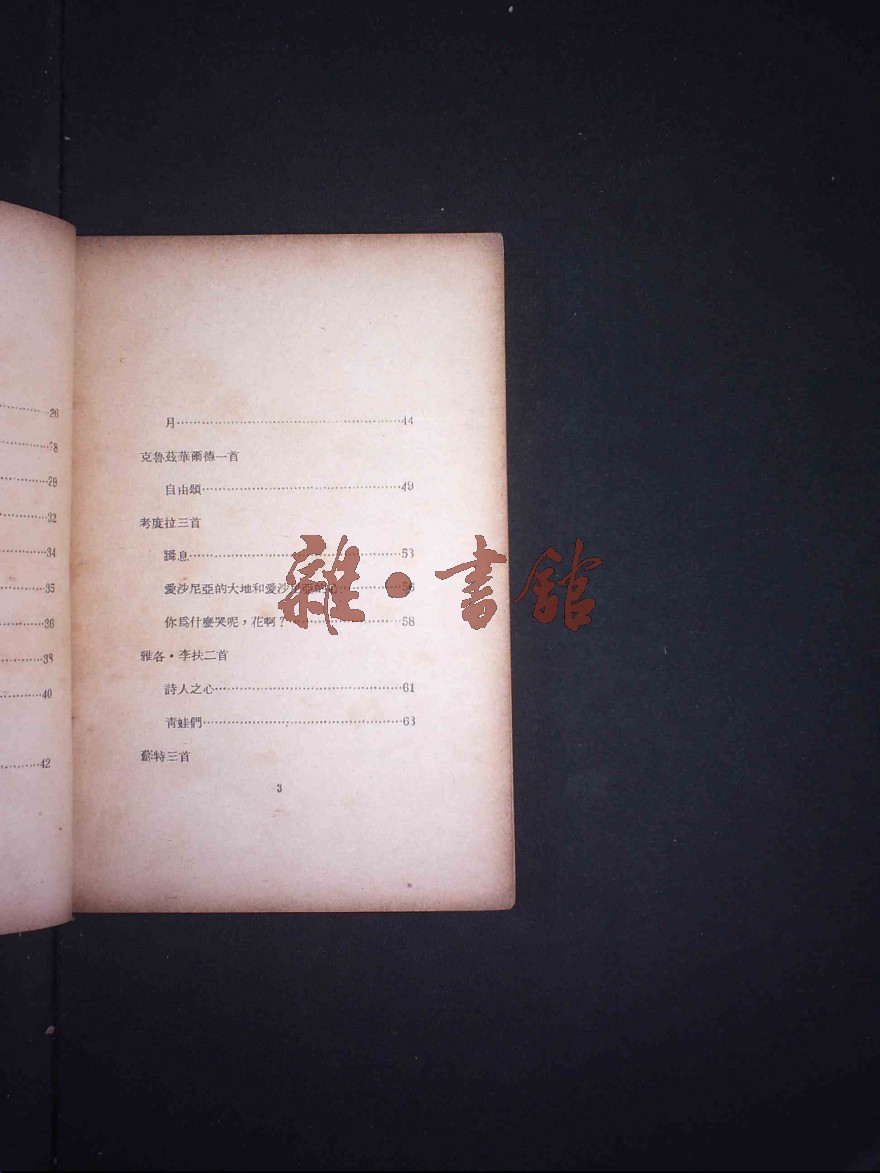 26
28
29
32
34
35
36
38
40
42
月……44
克魯茲華爾德一首
自由頌……49
考度拉三首
息……53
愛沙尼亞的大地和愛沙尼亞的……56
你爲什麼哭呢，花啊？……58
雅各·李扶二首
詩人之心……61
靑蛙們……63
蘇特三首
3
雜·書館